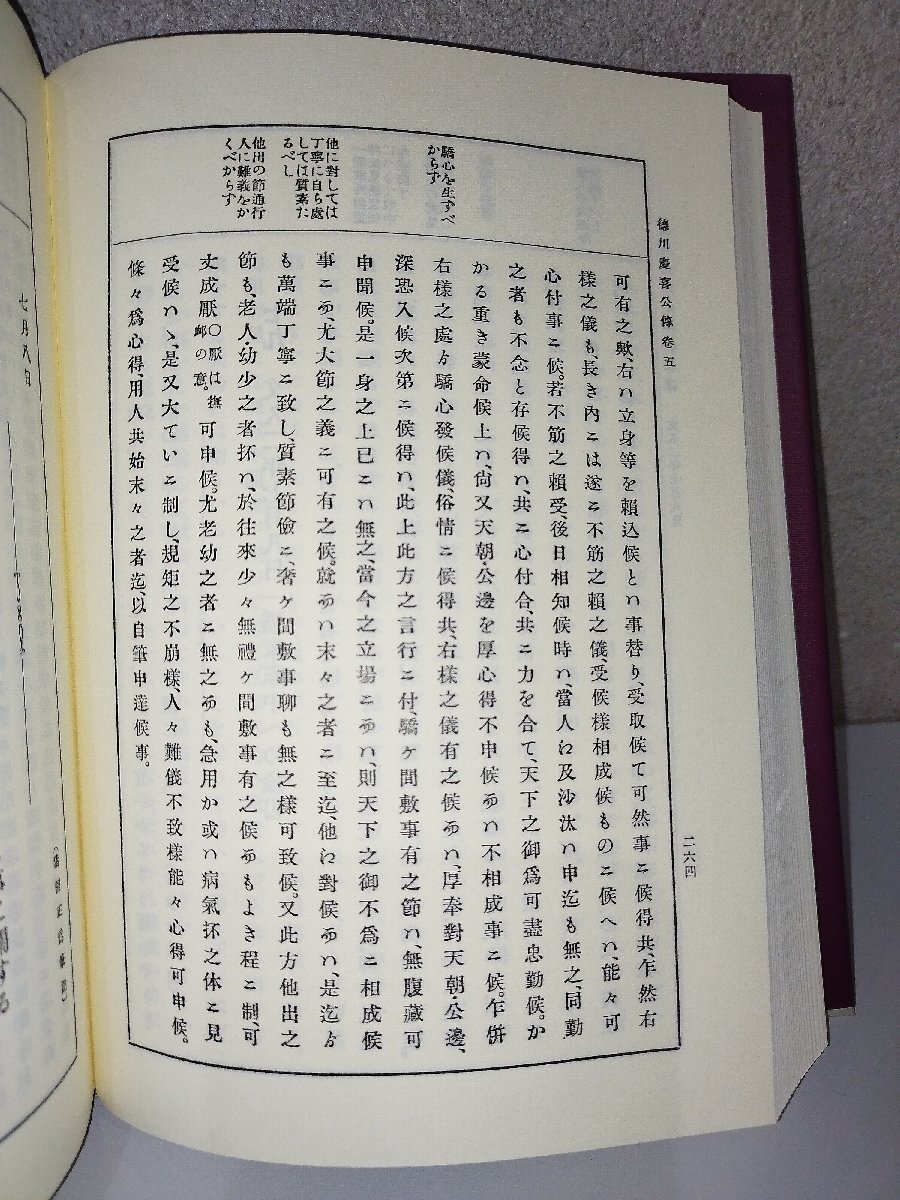 徳川慶喜公傳卷五
二六四
驕心を生ずべ
からず
他に對しては
丁寧に自ら處
しては質素た
るべし
他出の節通行
人に難義をか
くべからず
可有之歟、右ハ立身等を賴込候とハ事替り、受取候て可然事ニ候得共、乍然右
樣之儀も、長き內ニは遂ニ不筋之賴之儀、受候樣相成候ものニ候へハ、能々可
心付事ニ候。若不筋之賴受、後日相知候時ハ、當人ゟ及沙汰ハ申迄も無之、同勤
之者も不念と存候得ハ、共ニ心付合、共ニ力を合て、天下之御爲可盡忠勤候。か
かる重き蒙命候上ハ、尙又天朝・公邊を厚心得不申候而ハ不相成事ニ候。乍併
右樣之處ゟ驕心發候儀、俗情ニ候得共、右樣之儀有之候而ハ、厚奉對天朝・公邊、
深恐入候次第ニ候得ハ、此上此方之言行ニ付、驕ケ間敷事有之節ハ、無腹藏可
申聞候。是一身之上已ニハ無之、當今之立場ニ而ハ、則天下之御不爲ニ相成候
事ニ而、尤大節之義ニ可有之候。就而ハ末々之者ニ至迄、他ゟ對候而ハ、是迄ゟ
も萬端丁寧ニ致し、質素節儉ニ、奢ケ間敷事聊も無之樣可致候。又此方他出之
節も、老人・幼少之者抔ハ、於往來少々無禮ケ間敷事有之候而もよき程ニ制、可
丈成厭〇厭は撫卹の意。可申候。尤老幼之者ニ無之而も、急用か或ハ病氣抔之体ニ見
受候ハヽ、是又大ていニ制し、規矩之不崩樣、人々難儀不致樣能々心得可申候。
條々爲心得、用人共始末々之者迄、以自筆申達候事。
七月